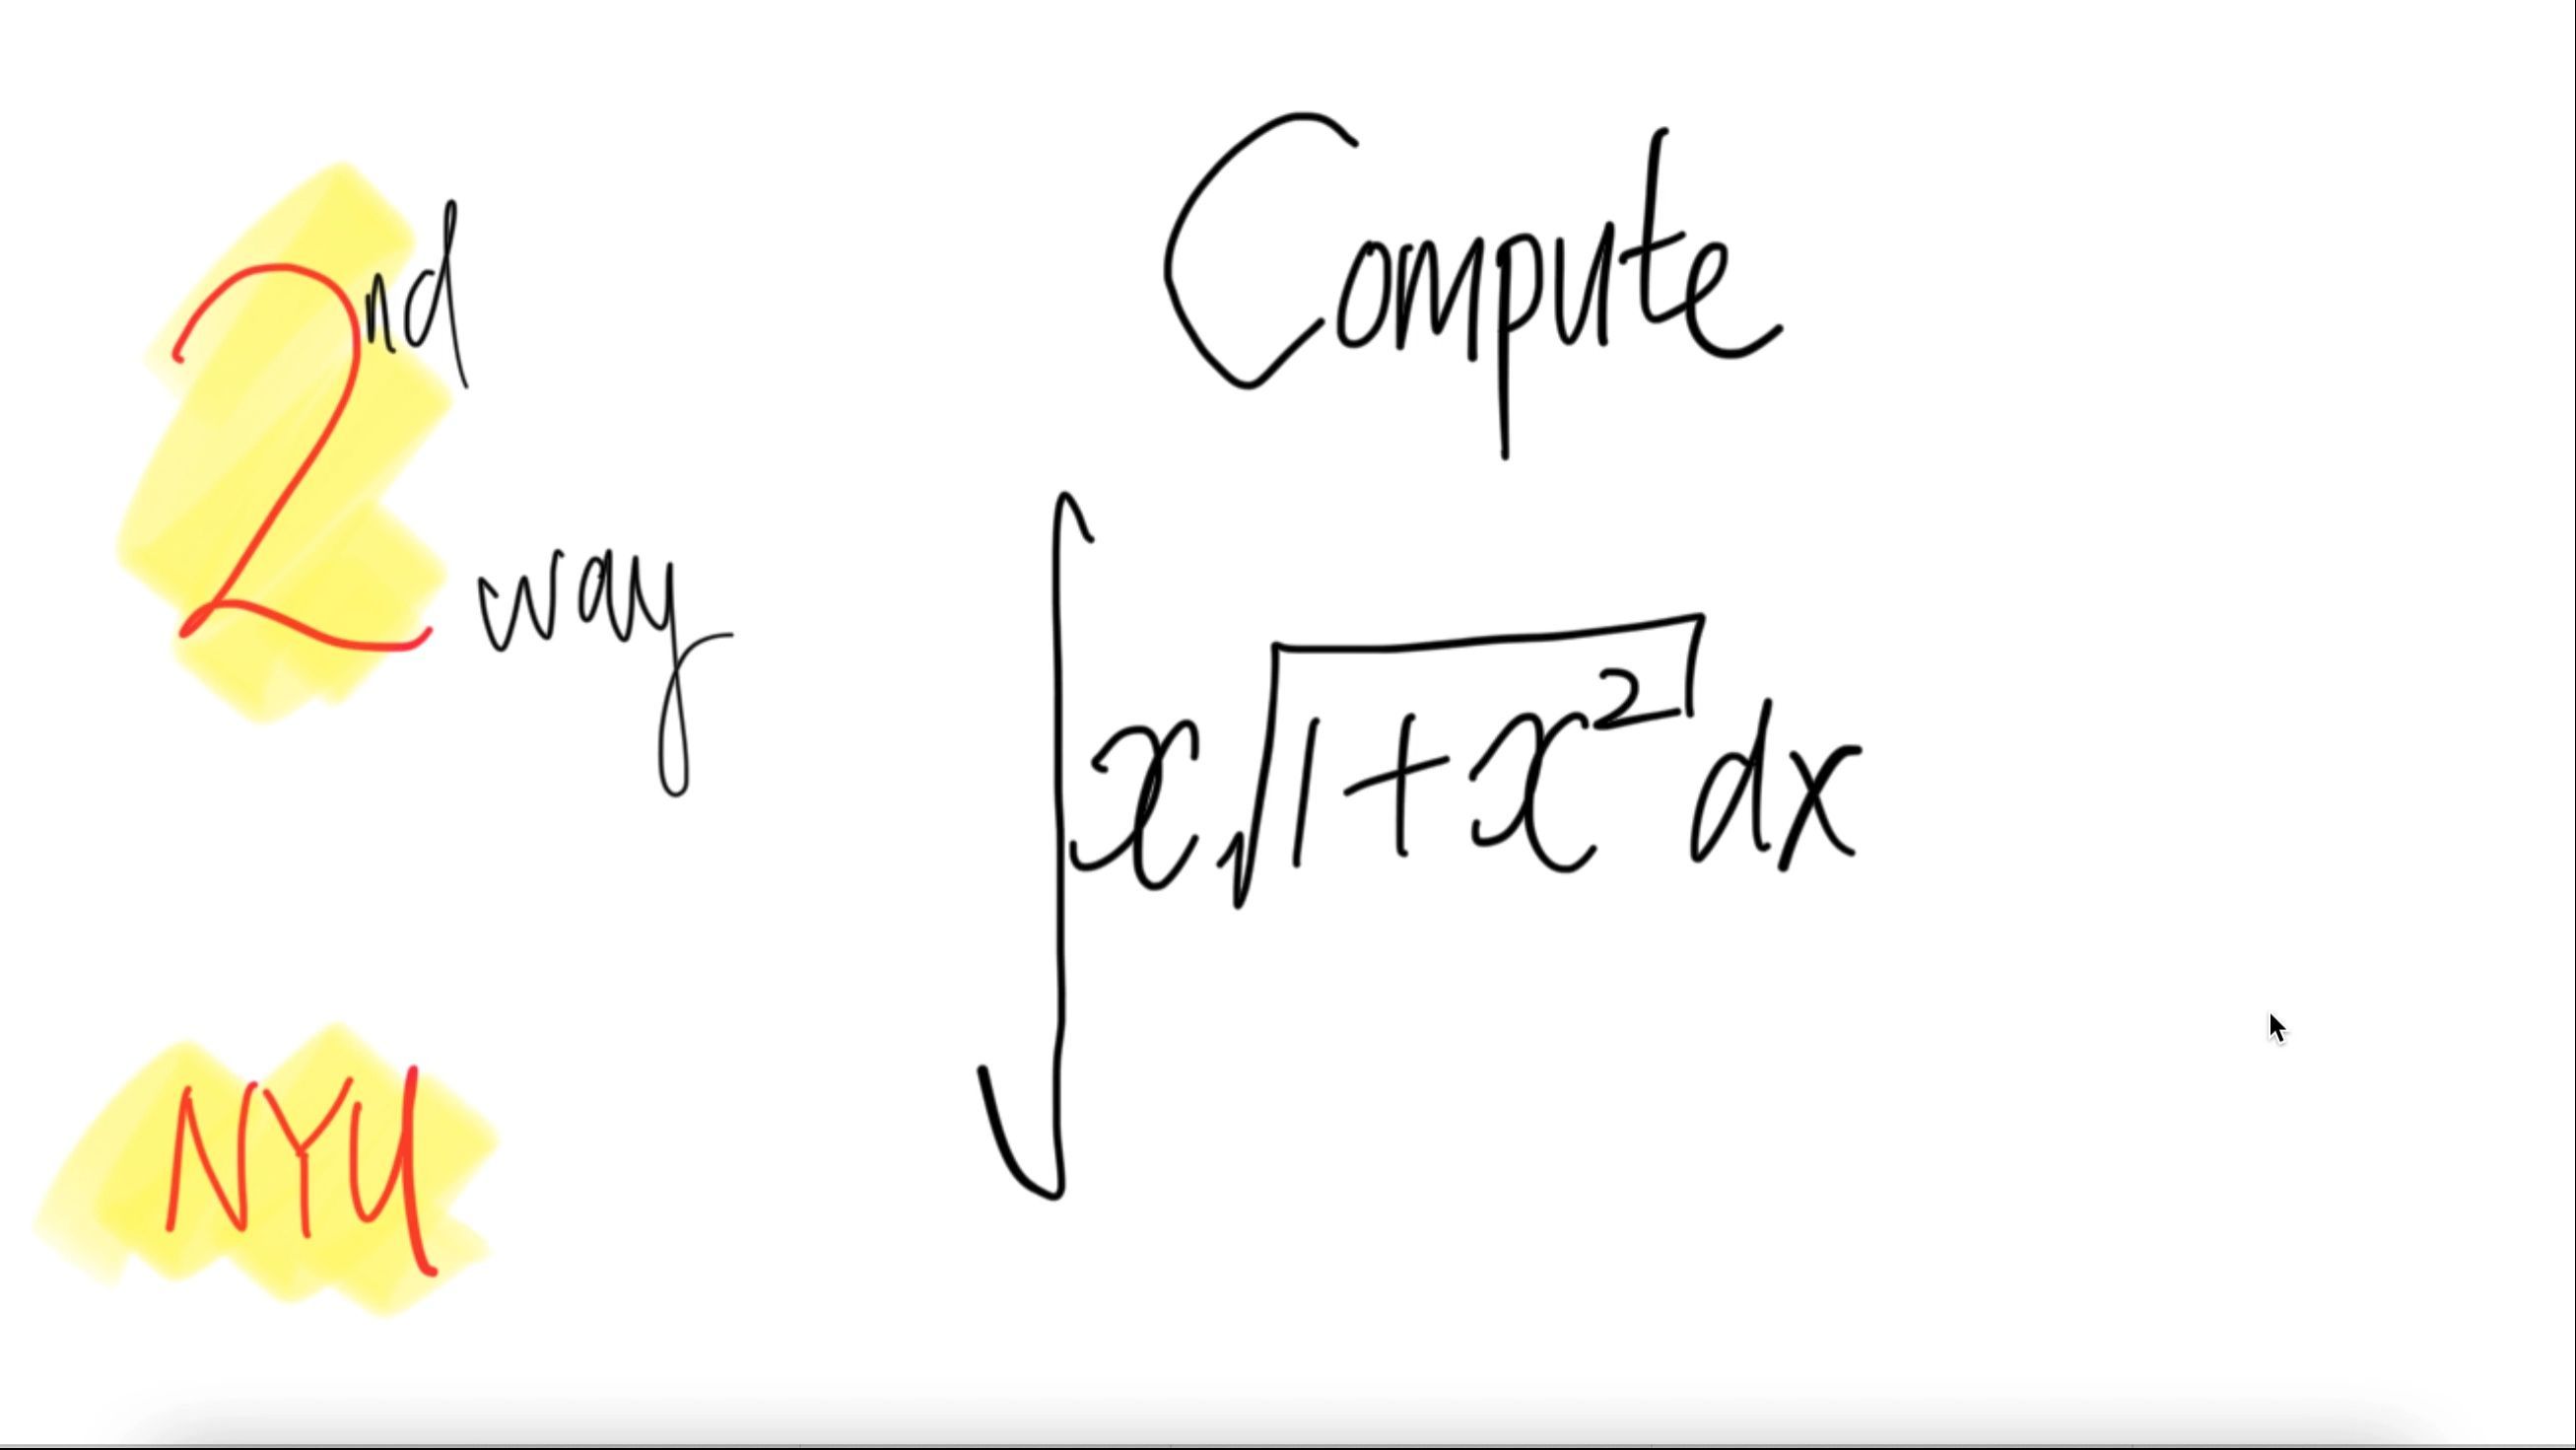 2nd way
NYU
Compute
∫x√(1+x²) dx